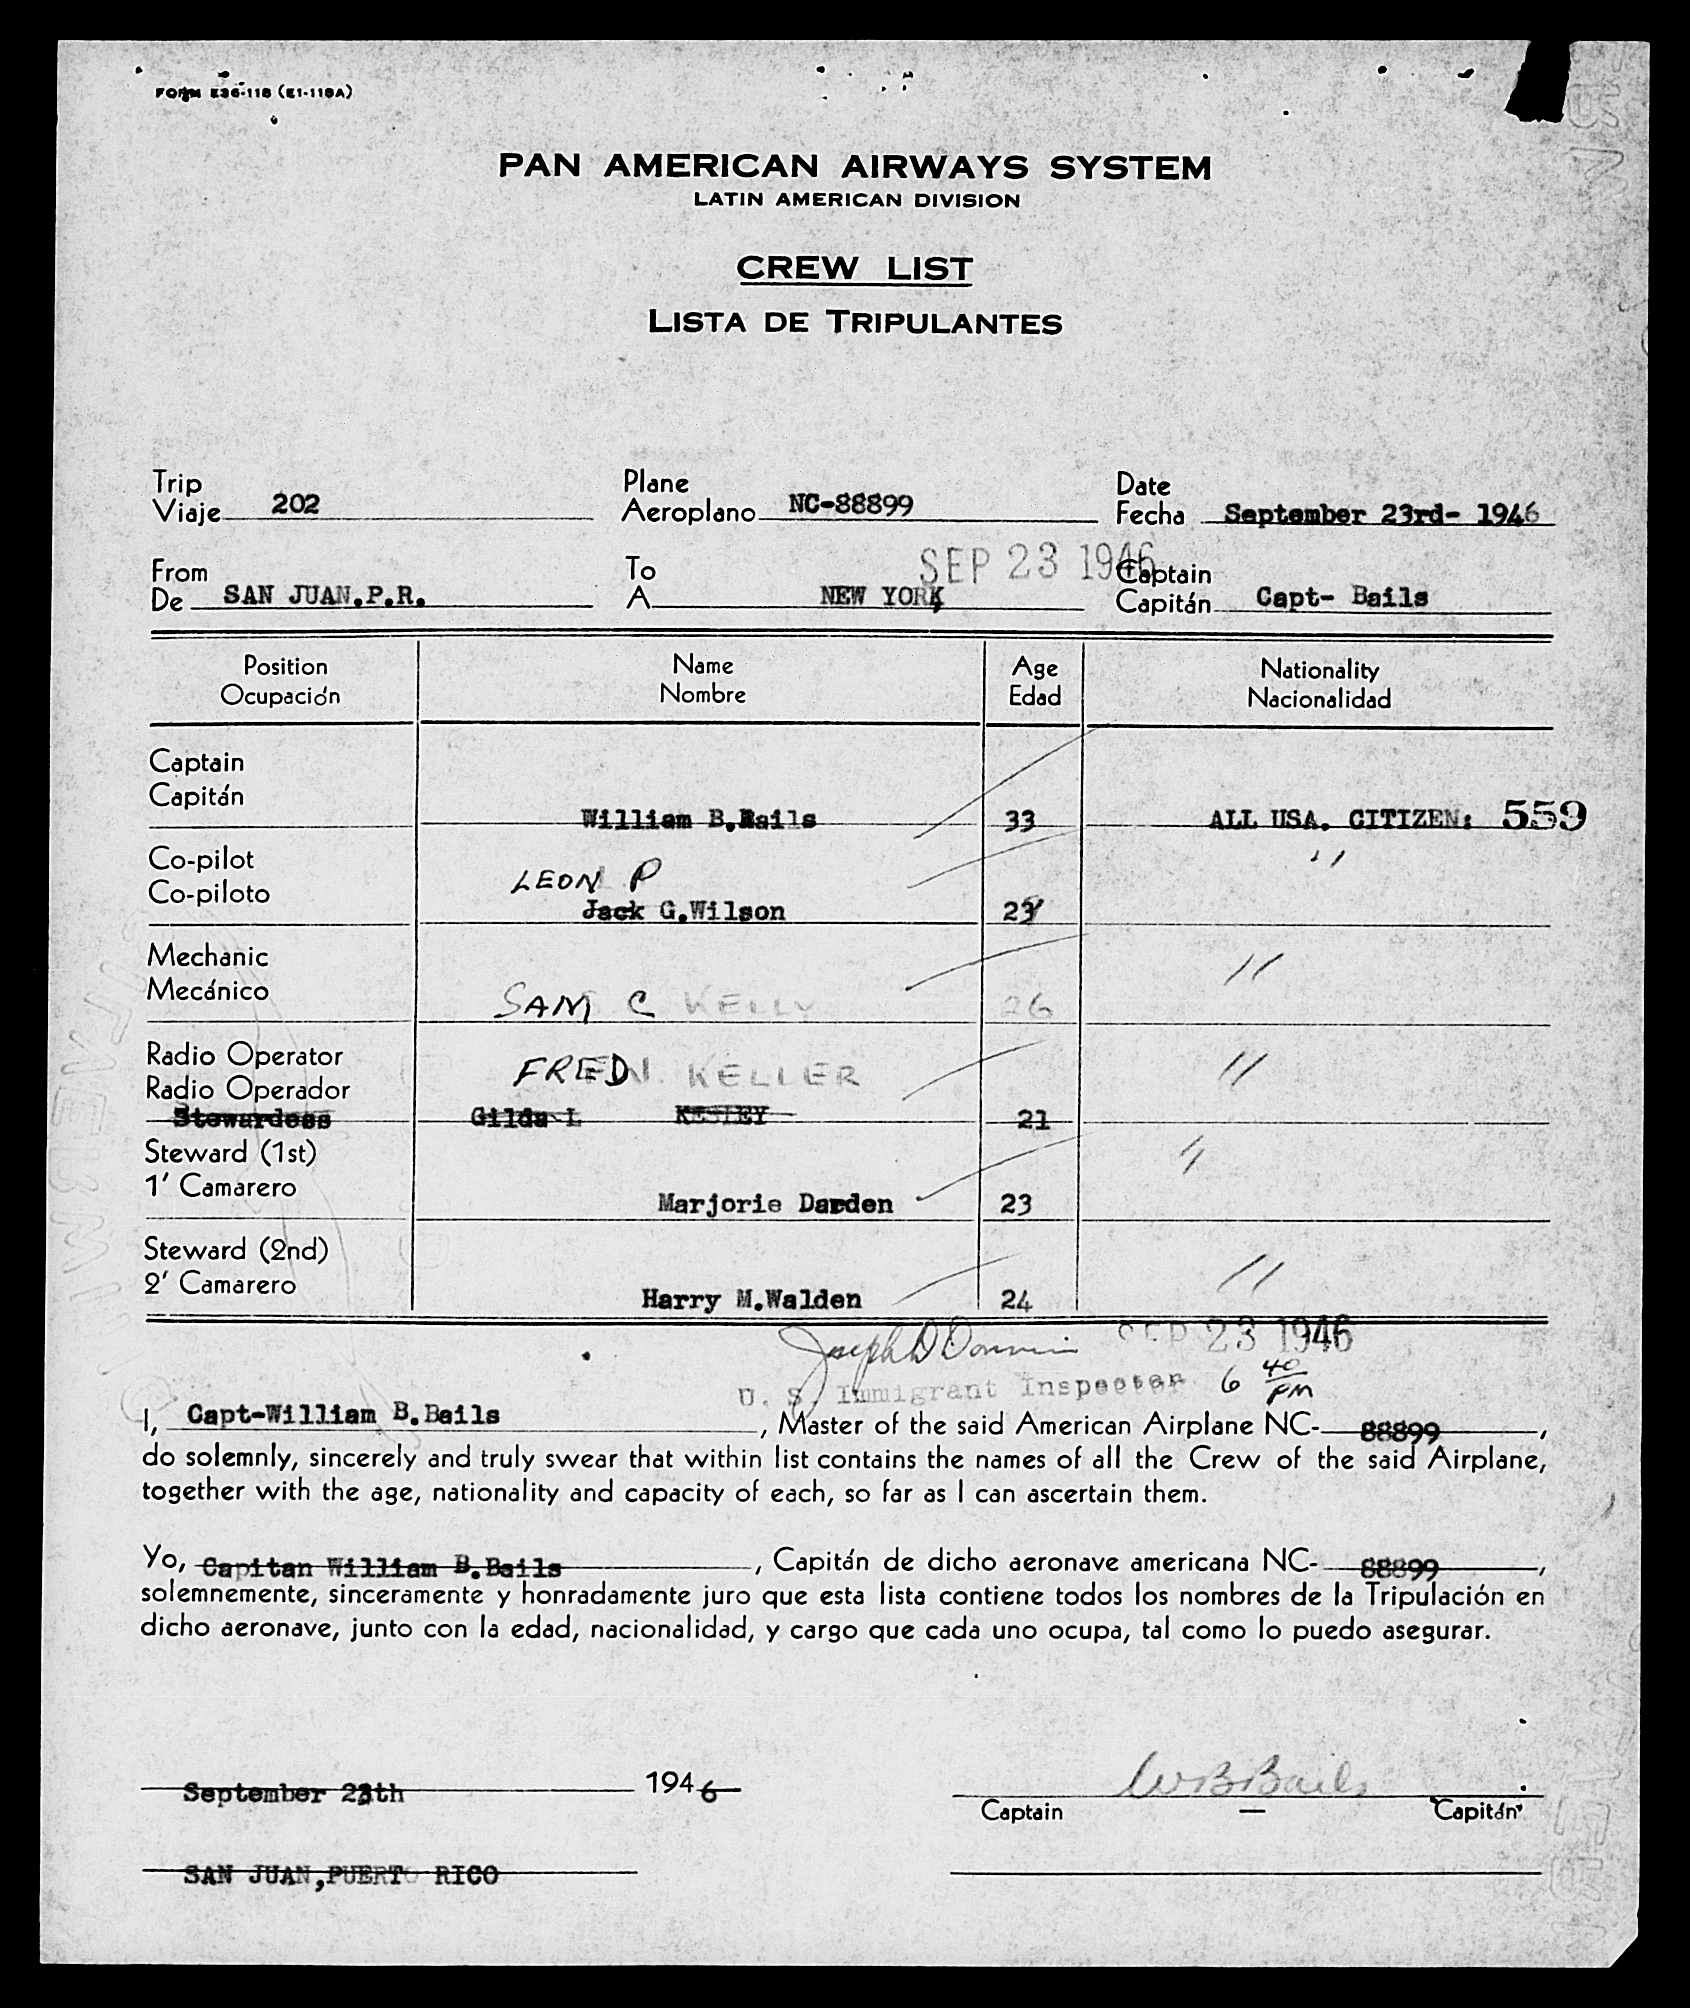 FORM E36-118 (E1-118A)
PAN AMERICAN AIRWAYS SYSTEM
LATIN AMERICAN DIVISION
CREW LIST
LISTA DE TRIPULANTES
Trip Plane Date
Viaje 202 Aeroplano NC-88899 Fecha September 23rd- 1946
SEP 23 1946
From To Captain
De SAN JUAN.P.R. A NEW YORK Capitán Capt- Bails
Position Name Age Nationality
Ocupación Nombre Edad Nacionalidad
Captain
Capitán William B.Bails 33 ALL USA. CITIZEN: 559
Co-pilot LEON P "
Co-piloto Jack G.Wilson 23
Mechanic "
Mecánico SAM C KELLY 26
Radio Operator FRED KELLER "
Radio Operador
Stewardess Gilda L KESLEY 21
Steward (1st) "
1' Camarero Marjorie Darden 23
Steward (2nd) "
2' Camarero Harry M.Walden 24
SEP 23 1946
U. S. Immigrant Inspector 6 40 PM
I, Capt-William B.Bails, Master of the said American Airplane NC-88899,
do solemnly, sincerely and truly swear that within list contains the names of all the Crew of the said Airplane,
together with the age, nationality and capacity of each, so far as I can ascertain them.
Yo, Capitan William B.Bails, Capitán de dicho aeronave americana NC-88899,
solemnemente, sinceramente y honradamente juro que esta lista contiene todos los nombres de la Tripulación en
dicho aeronave, junto con la edad, nacionalidad, y cargo que cada uno ocupa, tal como lo puedo asegurar.
September 23th 1946 WB Bails
Captain — Capitán
SAN JUAN,PUERTO RICO